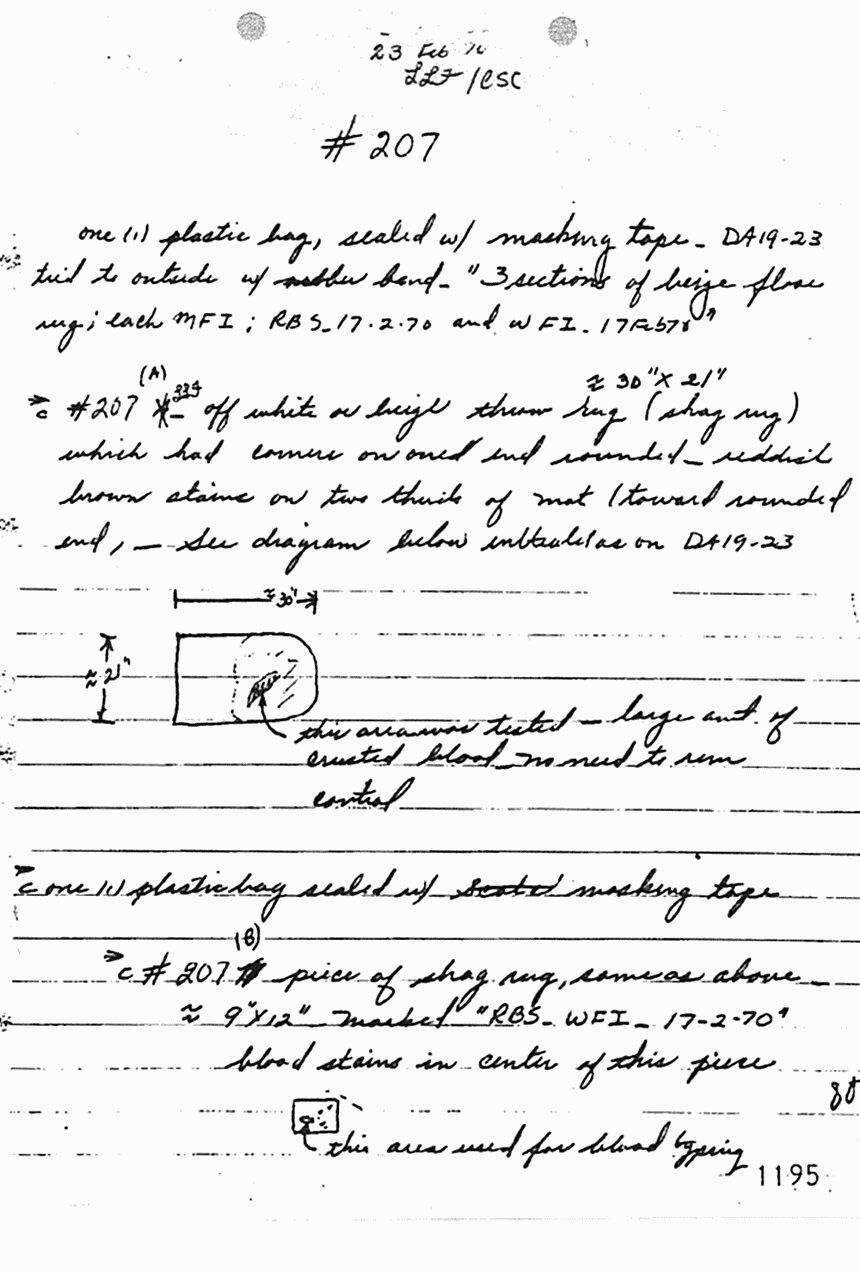 23 Feb 70
LLF/CSC
# 207
one (1) plastic bag, sealed w/ masking tape - DA19-23
tied to outside w/ rubber band - "3 sections of beige floor
rug; each MFI; RBS-17-2-70 and WFI-17Feb70"
(A)
≈ 30" X 21"
c #207 off white or beige throw rug (shag rug)
which had corners on oned end rounded - reddish
brown stains on two thirds of mat (toward rounded
end, - See diagram below as on DA19-23
≈ 30"
≈ 21"
this area was tested - large amt. of
crusted blood - no need to run
control
c one (1) plastic bag sealed w/ masking tape
(B)
c # 207 piece of shag rug, same as above -
≈ 9"X12" marked "RBS- WFI- 17-2-70"
blood stains in center of this piece
this area used for blood typing
1195